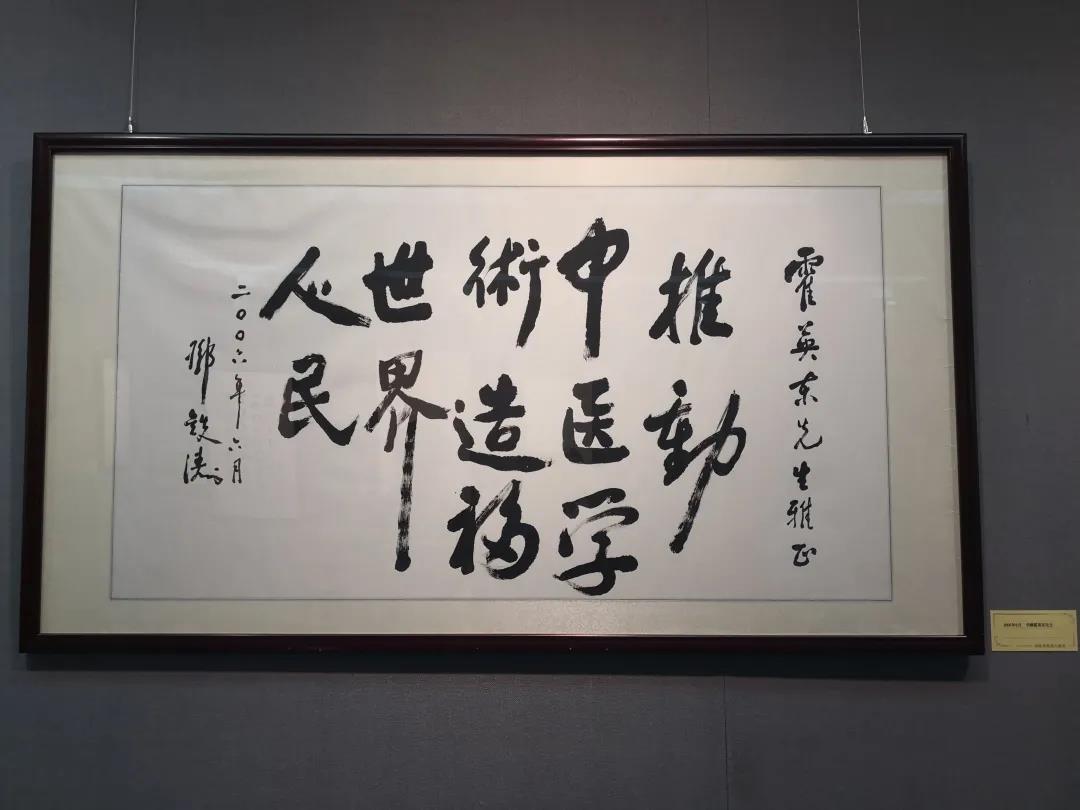 霍英东先生雅正
推動
中医学
術造福
世界
人民
二〇〇六年六月
鄧铁涛